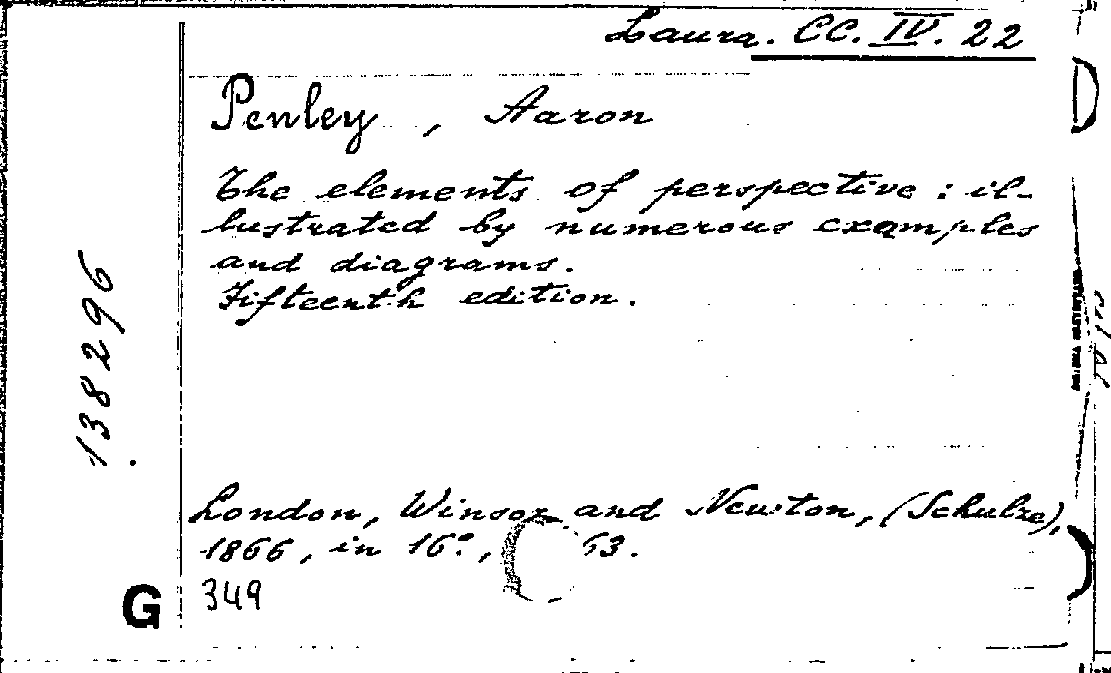 Laura. CC. IV. 22
Penley, Aaron
The elements of perspective : il-
lustrated by numerous examples
and diagrams.
Fifteenth edition.
138296
London, Winsor and Newton, (Schulze),
1866, in 16°, 63.
G 349